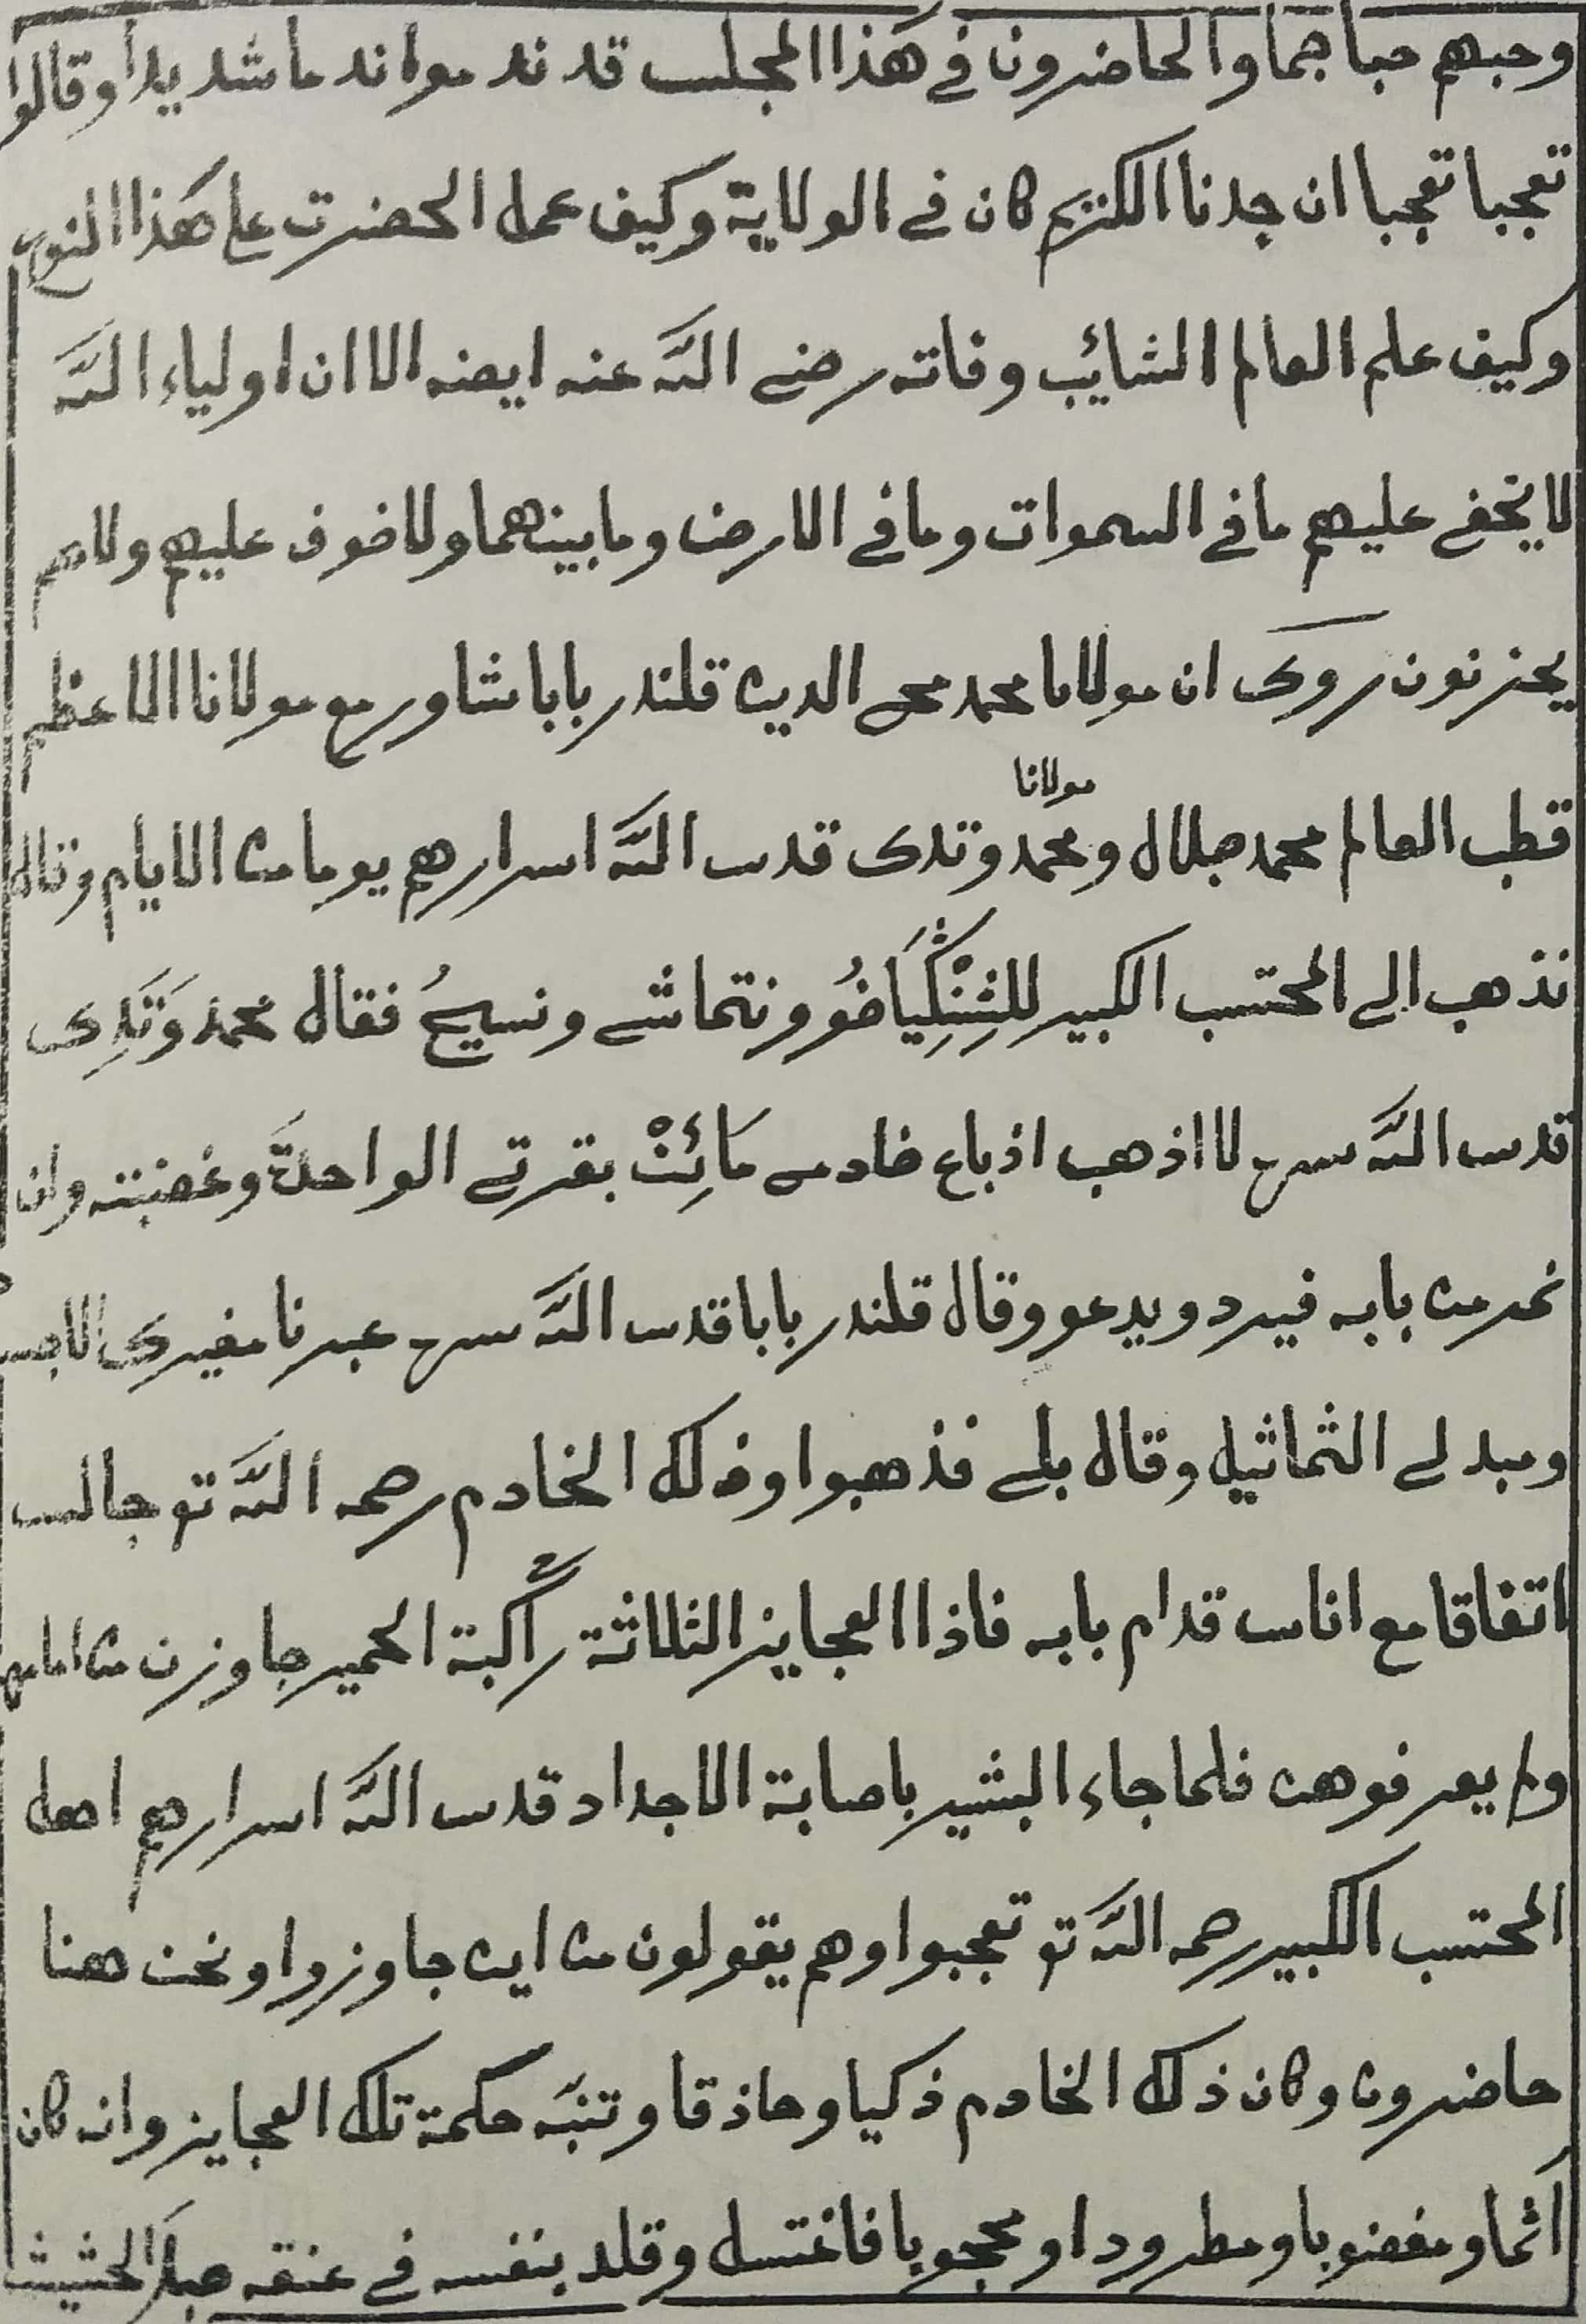 وحبهم حبا جما والحاضرون في هذا المجلس قد ندموا ندما شديدا وقالوا
تعجبا تعجبا ان جدنا الكريم كان في الولاية وكيف عمل الحضرت على هذا النور
وكيف علم العالم الشائب وفاته رضي الله عنه ايضه الا ان اولياء الله
لا يخفى عليهم ما في السموات وما في الارض وما بينهما ولا خوف عليهم ولا هم
يحزنون روى ان مولانا محمد محي الدين قلندر بابا شاور مع مولانا الاعظم
مولانا
قطب العالم محمد جلال ومحمد وتدى قدس الله اسرارهم يوما من الايام وقال
نذهب الى المحتسب الكبير ونتماشى ونسيحُ فقال محمد وَتَدِى
قدس الله سره لا اذهب اذ باع خادمي مَائِنْ بقرتي الواحدة وغضبته وان
نمر من بابه فيرد ويدعو وقال قلندر بابا قدس الله سره عبرنا مغيرى
ومبدلى التماثيل وقال بلى فذهبوا وذلك الخادم رحمه الله تو جالس
اتفاقا مع اناس قدام بابه فاذا العجايز الثلاثة راكبة الحمير جاوزن من
ولم يعرفوهن فلما جاء البشير باصابة الاجداد قدس الله اسرارهم اهل
المحتسب الكبير رحمه الله تو تعجبوا وهم يقولون من اين جاوزوا ونحن هنا
حاضرون وكان ذلك الخادم ذكيا وحاذقا وتنبّه حكمة تلك العجايز وانه كان
آثما ومغضوبا ومطرودا ومحجوبا فاغتسل وقلد بنفسه في عنقه حبلا